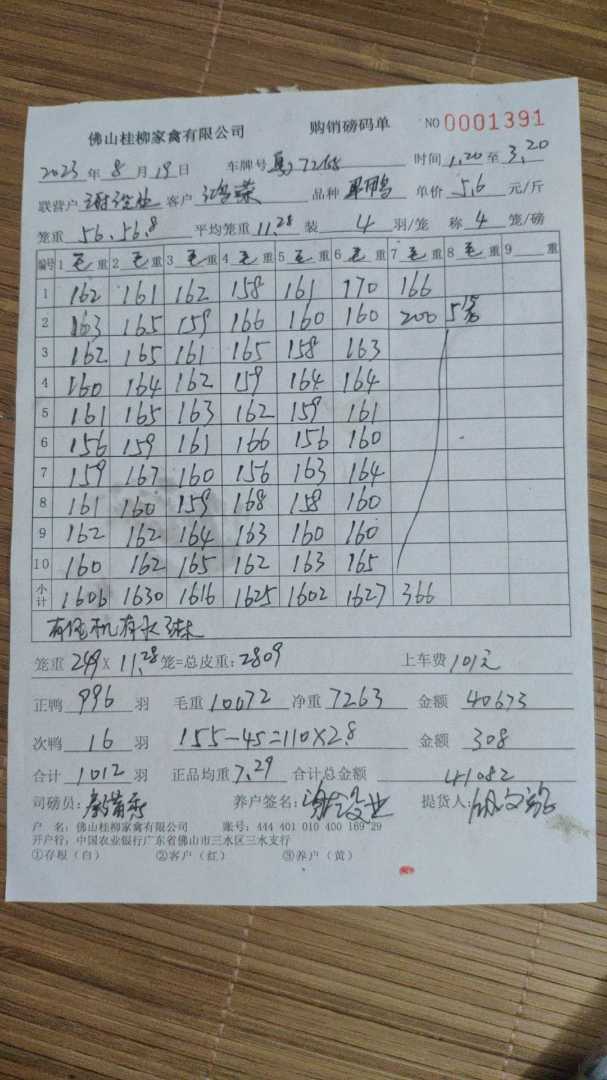 佛山桂柳家禽有限公司 购销磅码单 NO 0001391
2023 年 8 月 19 日 车牌号 粤J7265 时间 1.20 至 3.20
联营户 客户 鸿荣 品种 单价 5.6 元/斤
笼重 56.56.8 平均笼重 11.28 装 4 羽/笼 称 4 笼/磅
编号 1 毛 重 2 毛 重 3 毛 重 4 毛 重 5 毛 重 6 毛 重 7 毛 重 8 毛 重 9 重
1 162 161 162 158 161 170 166
2 163 165 159 166 160 160 200 5笼
3 162 165 161 165 158 163
4 160 164 162 159 164 164
5 161 165 163 162 159 161
6 156 159 161 166 156 160
7 159 167 160 156 163 164
8 161 160 159 168 158 160
9 162 162 164 163 160 160
10 160 162 165 162 163 165
小计 1606 1630 1616 1625 1602 1627 366
笼重 249 X 11.28 笼=总皮重: 2809 上车费 101元
正鸭 996 羽 毛重 10072 净重 7263 金额 40673
次鸭 16 羽 155-45=110×2.8 金额 308
合计 1012 羽 正品均重 7.29 合计总金额 41082
司磅员: 养户签名: 提货人:
户 名: 佛山桂柳家禽有限公司 账号: 444 401 010 400 169 29
开户行: 中国农业银行广东省佛山市三水区三水支行
①存根（白） ②客户（红） ③养户（黄）